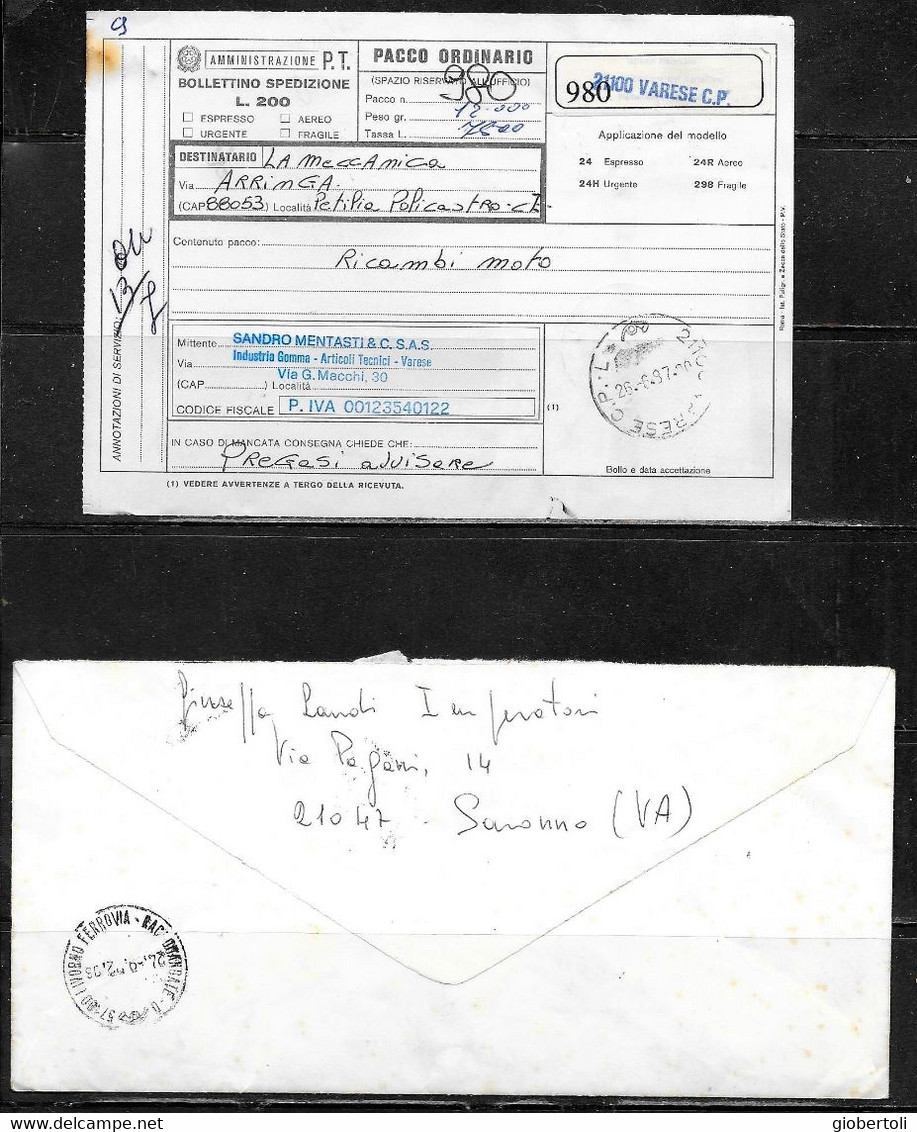 AMMINISTRAZIONE P.T.
BOLLETTINO SPEDIZIONE
L. 200
ESPRESSO AEREO
URGENTE FRAGILE
PACCO ORDINARIO
(SPAZIO RISERVATO ALL'UFFICIO)
Pacco n. 980
Peso gr. 12.000
Tassa L.
980 21100 VARESE C.P.
Applicazione del modello
24 Espresso 24R Aereo
24H Urgente 298 Fragile
DESTINATARIO LA MeccAnica
Via ARRINGA
(CAP 88053) Località Petilia Policastro
Contenuto pacco:
Ricambi moto
ANNOTAZIONI DI SERVIZIO:
Mittente SANDRO MENTASTI & C. S.A.S.
Industria Gomma - Articoli Tecnici - Varese
Via Via G. Macchi, 30
(CAP ) Località
CODICE FISCALE P. IVA 00123540122
(1)
IN CASO DI MANCATA CONSEGNA CHIEDE CHE:
PREGASI AVVISARE
(1) VEDERE AVVERTENZE A TERGO DELLA RICEVUTA.
Bollo e data accettazione
Roma - Ist. Poligr. e Zecca dello Stato - P.V.
Via Pagani, 14
21047 - Saronno (VA)
LIVORNO FERROVIA
globertoli